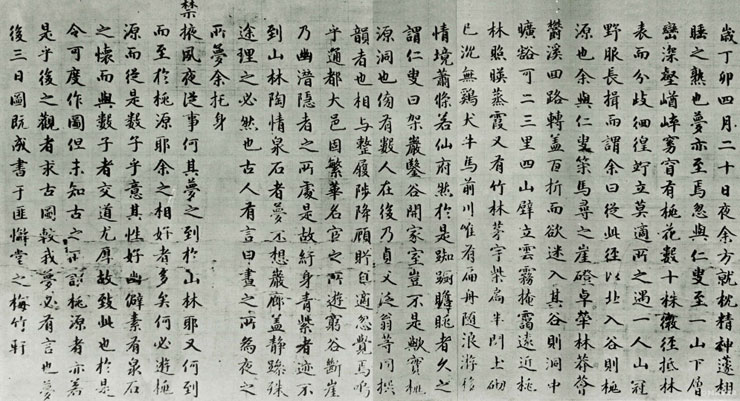 歲丁卯四月二十日夜余方就枕精神蘧栩
睡之熟也夢亦至焉忽與仁叟至一山下層
巒深壑崷崒窈窅有桃花數十株微徑抵林
表而分歧徊徨竚立莫適所之遇一人山冠
野服長揖而謂余曰從此徑以北入谷則桃
源也余與仁叟策馬尋之崖磴卓犖林莽薈
鬱溪回路轉盖百折而欲迷入其谷則洞中
曠豁可二三里四山壁立雲霧掩靄遠近桃
林照暎蒸霞又有竹林茅宇柴扃半開土砌
已沉無鷄犬牛馬前川唯有扁舟隨浪游移
情境蕭條若仙府然於是踟躕瞻眺者久之
謂仁叟曰架巖鑿谷開家室豈不是歟實桃
源洞也傍有數人在後乃貞父泛翁等同撰
韻者也相與整履陟降顧眄自適忽覺焉嗚
乎通都大邑固繁華名宦之所遊窮谷斷崖
乃幽潛隱者之所處是故紆身青紫者迹不
到山林陶情泉石者夢不想巖廊盖靜躁殊
途理之必然也古人有言曰晝之所爲夜之
所夢余托身
禁掖夙夜從事何其夢之到於山林耶又何到
而至於桃源耶余之相好者多矣何必遊桃
源而從是數子乎意其性好幽僻素有泉石
之懷而與數子者交道尤厚故致此也於是
令可度作圖但未知古之所謂桃源者亦若
是乎後之觀者求古圖較我夢必有言也夢
後三日圖旣成書于匪懈堂之梅竹軒